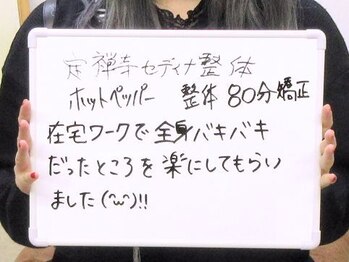 定禅寺セディナ整体
ホットペッパー 整体 80分矯正
在宅ワークで全身バキバキ
だったところを楽にしてもらい
ました(^w^)!!